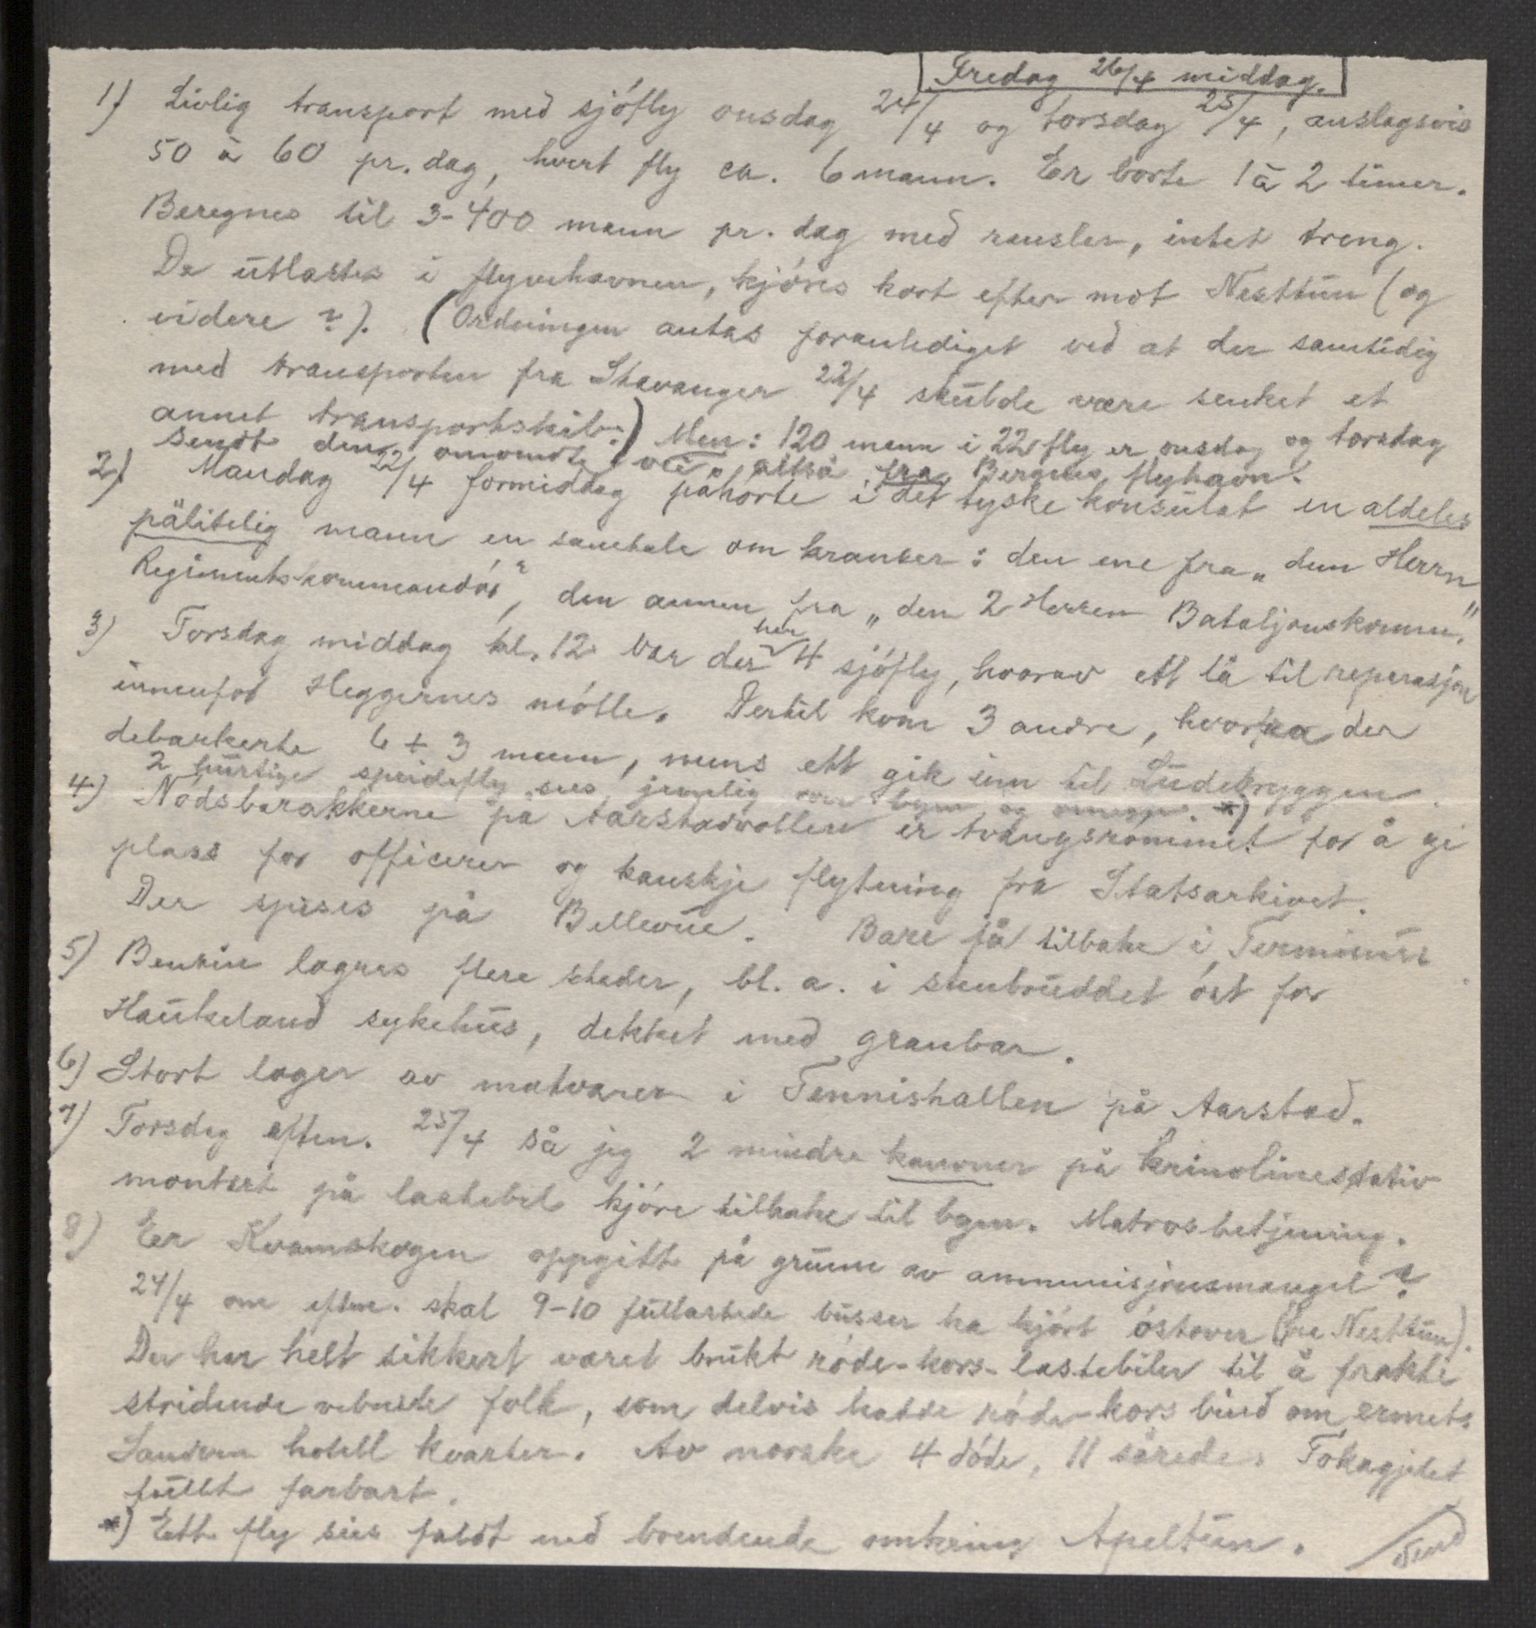 Fredag 26/4 middag.
1) Livlig transport med sjófly onsdag 24/4 og torsdag 25/4, anslagsvis
50 à 60 pr. dag, hvert fly ca. 6 mann. Er borte 1 à 2 timer.
Beregnes til 3-400 mann pr. dag med ransler, intet treng.
De utlastes i flyvehavnen, kjóres kort efter mot Nesttun (og
videre ?). (Ordningen antas foranlediget ved at der samtidig
med transporten fra Stavanger 22/4 skulde være senket et
annet transportskib.) Men: 120 mann i 22 fly er onsdag og torsdag
sendt den omvendte vei, altså fra Bergens flyhavn!
2) Mandag 22/4 formiddag påhórte i det tyske konsulat en aldeles
pålitelig mann en samtale om kranser: den ene fra "dem Herrn
Regimentskommandór", den annen fra "den 2 Herren Bataljonskomm."
3) Torsdag middag kl. 12 var der her 4 sjófly, hvorav ett lå til reparasjon
innenfor Heggernes mólle. Dertil kom 3 andre, hvorfra der
debarkerte 6 + 3 mann, mens ett gik inn til Ludebryggen.
2 hurtige speidefly sees jevnlig over byen og omegn. *)
4) Nódsbarakkerne på Aarstadvollen er tvangsrómmet for å gi
plass for officerer og kanskje flytning fra Statsarkivet.
Der spises på Bellevue. Bare få tilbake i Terminus
5) Bensin lagres flere steder, bl. a. i stenbruddet óst for
Haukeland sykehus, dekket med granbar.
6) Stort lager av matvarer i Tennishallen på Aarstad.
7) Torsdag eftm. 25/4 så jeg 2 mindre kanoner på krinolinestativ
montert på lastebil kjóre tilbake til byen. Matrosbetjening.
8) Er Kvamskogen oppgitt på grunn av ammunisjonsmangel?
24/4 om eftm. skal 9-10 fullastede busser ha kjórt óstover (fra Nesttun).
Der har helt sikkert været brukt róde-kors-lastebiler til å frakte
stridende vebnede folk, som delvis hadde róde-kors bind om ermet.
Sandven hotell kvarter. Av norske 4 dóde, 11 sårede. Tokagjelet
fullt farbart.
*) Ett fly sies faldt ned brendende omkring Apeltun.